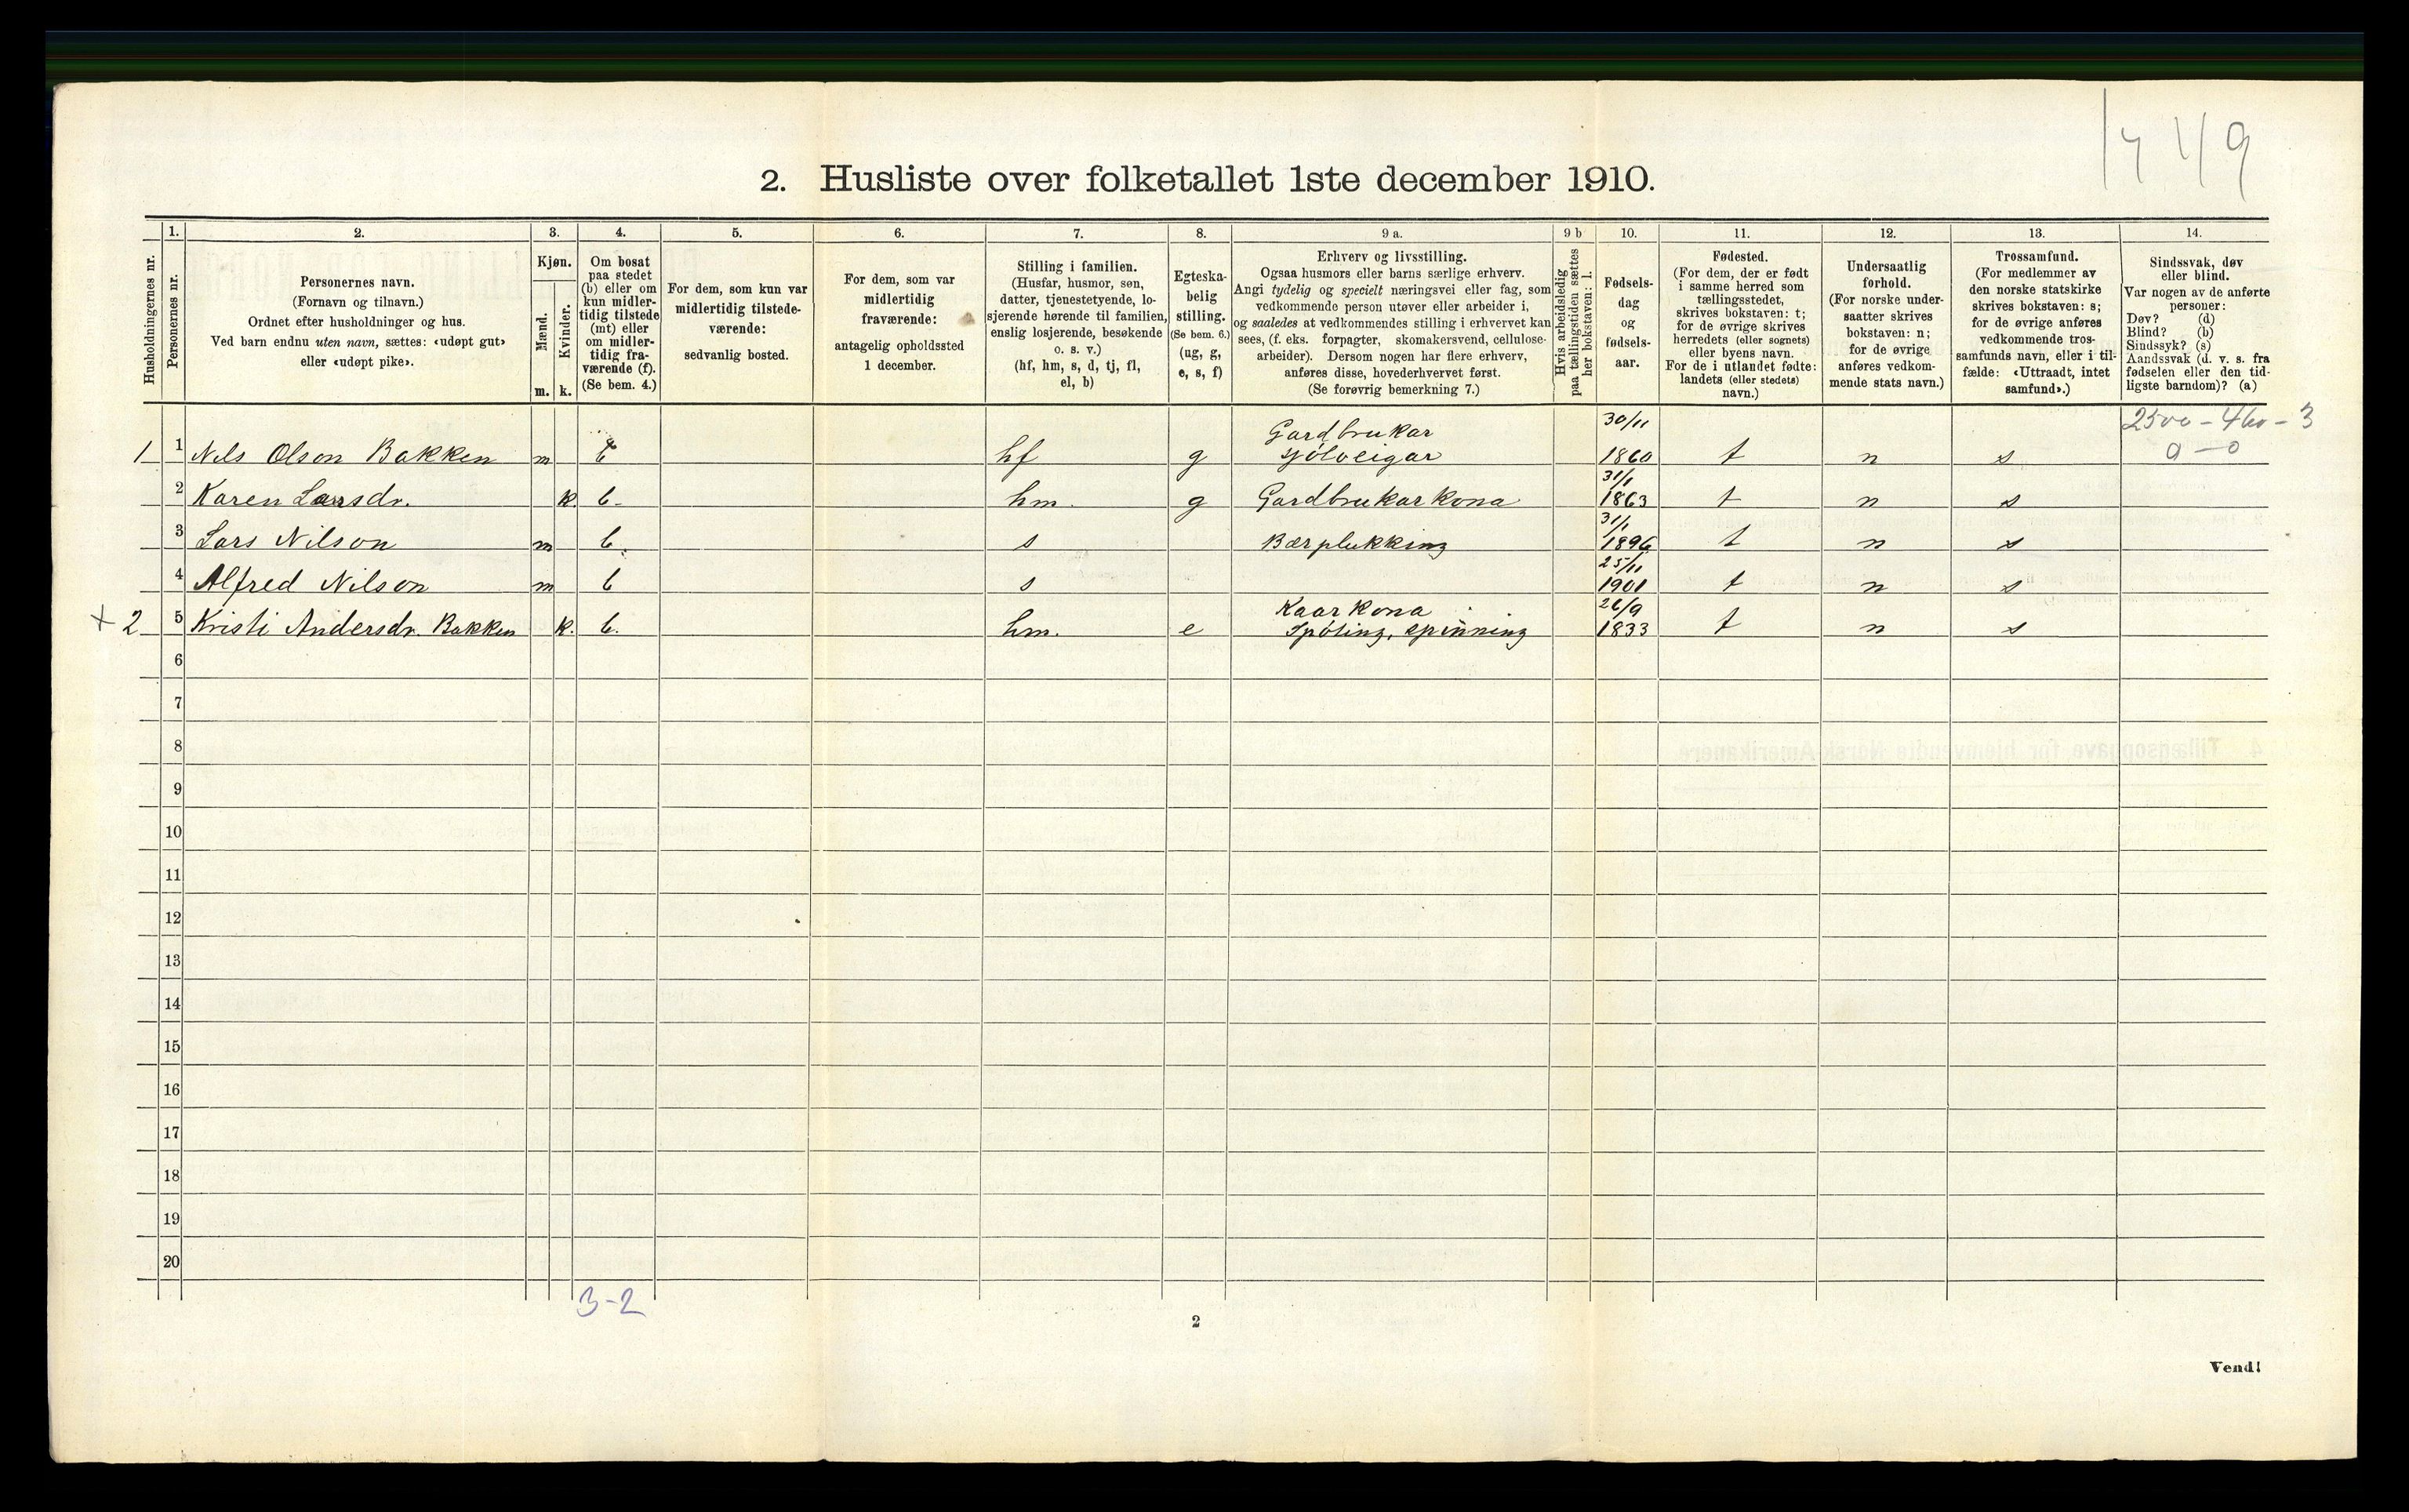 1449
2. Husliste over folketallet 1ste december 1910.
Husholdningernes nr.
1. Personernes nr.
2. Personernes navn.
(Fornavn og tilnavn.)
Ordnet efter husholdninger og hus.
Ved barn endnu uten navn, sættes: «udøpt gut»
eller «udøpt pike».
3. Kjøn.
Mænd. m.
Kvinder. k.
4. Om bosat
paa stedet
(b) eller om
kun midler-
tidig tilstede
(mt) eller
om midler-
tidig fra-
værende (f).
(Se bem. 4.)
5. For dem, som kun var
midlertidig tilstede-
værende:
sedvanlig bosted.
6. For dem, som var
midlertidig
fraværende:
antagelig opholdssted
1 december.
7. Stilling i familien.
(Husfar, husmor, søn,
datter, tjenestetyende, lo-
sjerende hørende til familien,
enslig losjerende, besøkende
o. s. v.)
(hf, hm, s, d, tj, fl,
el, b)
8. Egteska-
belig
stilling.
(Se bem. 6.)
(ug, g,
e, s, f)
9 a. Erhverv og livsstilling.
Ogsaa husmors eller barns særlige erhverv.
Angi tydelig og specielt næringsvei eller fag, som
vedkommende person utøver eller arbeider i,
og saaledes at vedkommendes stilling i erhvervet kan
sees, (f. eks. forpagter, skomakersvend, cellulose-
arbeider). Dersom nogen har flere erhverv,
anføres disse, hovederhvervet først.
(Se forøvrig bemerkning 7.)
9 b Hvis arbeidsledig
paa tællingstiden sættes
her bokstaven: l.
10. Fødsels-
dag
og
fødsels-
aar.
11. Fødested.
(For dem, der er født
i samme herred som
tællingsstedet,
skrives bokstaven: t;
for de øvrige skrives
herredets (eller sognets)
eller byens navn.
For de i utlandet fødte:
landets (eller stedets)
navn.)
12. Undersaatlig
forhold.
(For norske under-
saatter skrives
bokstaven: n;
for de øvrige
anføres vedkom-
mende stats navn.)
13. Trossamfund.
(For medlemmer av
den norske statskirke
skrives bokstaven: s;
for de øvrige anføres
vedkommende tros-
samfunds navn, eller i til-
fælde: «Uttraadt, intet
samfund».)
14. Sindssvak, døv
eller blind.
Var nogen av de anførte
personer:
Døv? (d)
Blind? (b)
Sindssyk? (s)
Aandssvak (d. v. s. fra
fødselen eller den tid-
ligste barndom)? (a)
Gardbrukar 30/11 2500 - 460 - 3
1 1 Nils Olson Bakken m b hf g sjølveigar 1860 t n s a - 0
31/1
2 Karen Larsdr. k. b. hm. g Gardbrukarkona 1863 t n s
31/1
3 Lars Nilson m b. s Bærplukking 1896 t n s
25/11
4 Alfred Nilson m b s 1901 t n s
Kaarkona 26/9
+ 2 5 Kristi Andersdr. Bakken k. b. hm. e Spøting, spinning 1833 t n s
6
7
8
9
10
11
12
13
14
15
16
17
18
19
20
3-2
2
Vend!